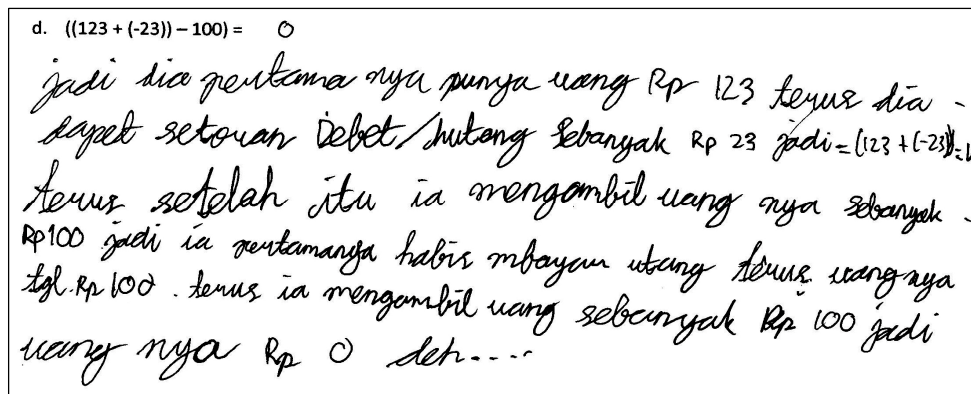 d. ((123 + (-23)) – 100) = 0
jadi dia pertama nya punya uang Rp 123 terus dia -
dapet setoran Debet/hutang sebanyak Rp 23 jadi = (123 + (-23)) =
terus setelah itu ia mengambil uang nya sebanyak -
Rp 100 jadi ia pertamanya habis mbayar utang terus uang nya
tgl. Rp 100. terus ia mengambil uang sebanyak Rp 100 jadi
uang nya Rp 0 deh....